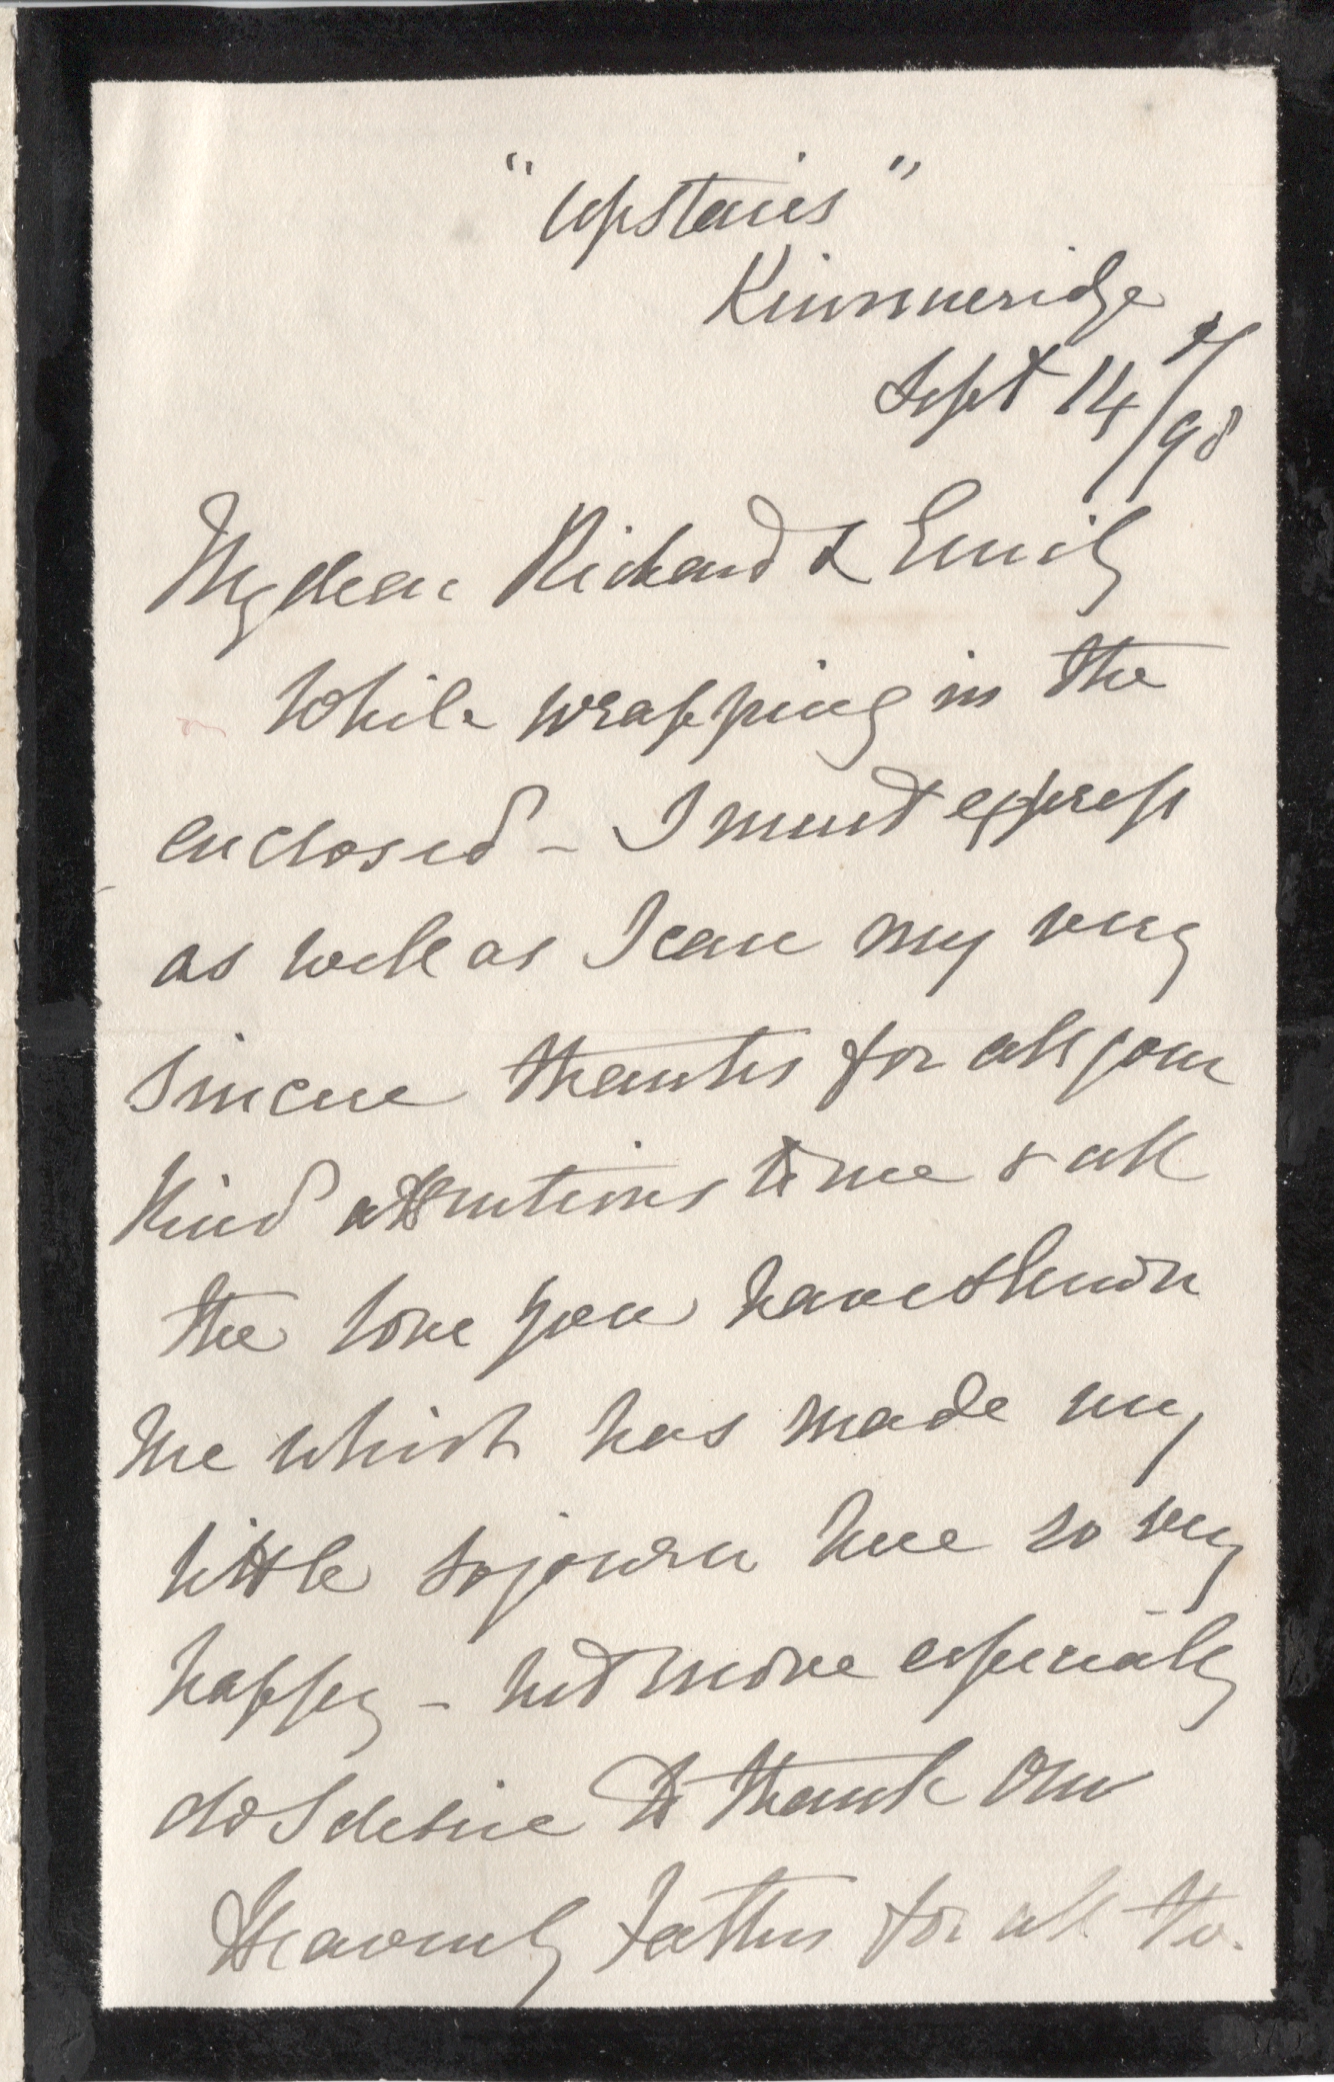 "Upstairs"
Kimmeridge
Sept 14th/98
My dear Richard & Emily
While wrapping in the
enclosed - I must express
as well as I can my very
sincere thanks for all your
kind attentions to me & all
the love you have shewn
me which has made my
little sojourn here so very
happy - but more especially
do I desire to thank Our
Heavenly Father for all the